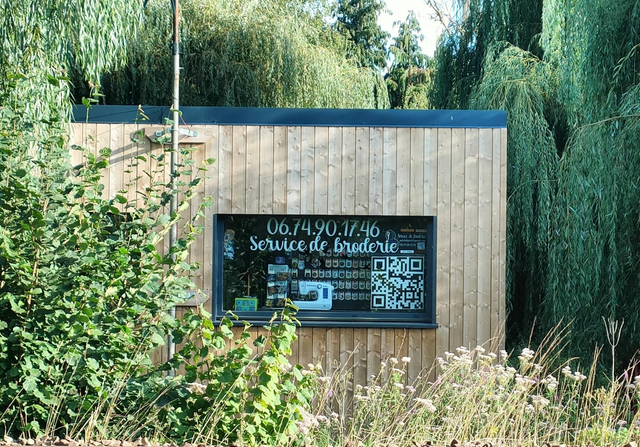 06.74.90.17.46
Service de broderie